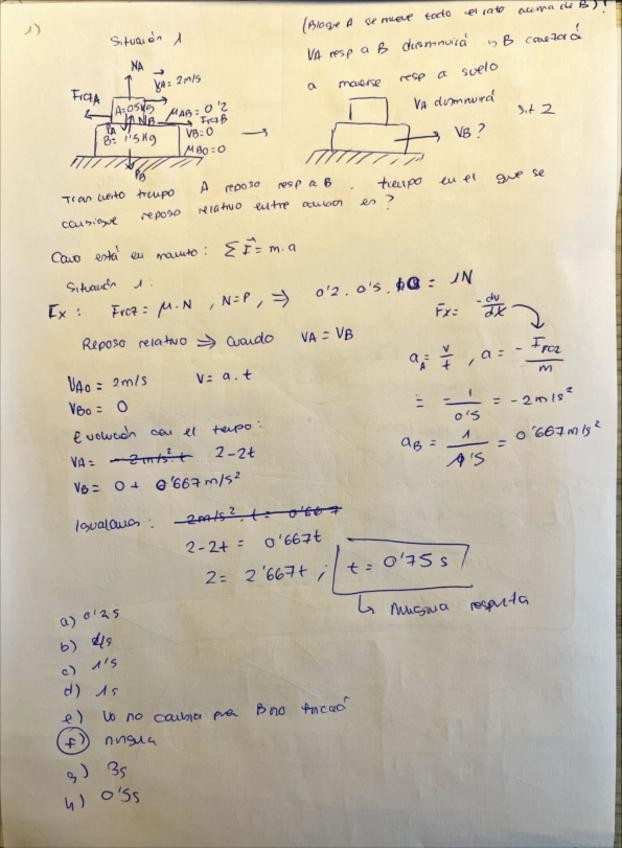 1)
(Bloque A se mueve todo el rato encima de B)!
Situación 1
VA resp a B disminuirá y B comenzará
a moverse resp a suelo
NA
VA = 2m/s
FrozA
A=0'5Kg
μAB = 0'2
NB
FrozB
PA
B = 1'5Kg
VB=0
μBO=0
PB
VA disminuirá
sit 2
VB?
Tran cuanto tiempo A reposo resp a B. tiempo en el que se
consigue reposo relativo entre ambos es?
Como está en movimiento: ΣF = m·a
Situación 1:
Ex: Froz = μ·N, N=P, ⇒ 0'2 · 0'5 · 10 = 1N
Fx = -dv/dx
Reposo relativo ⇒ Cuando VA = VB
aA = v/t, a = - Froz/m
VA0 = 2m/s V = a·t
= -1/0'5 = -2m/s²
VB0 = 0
aB = 1/1'5 = 0'667m/s²
Evolución con el tiempo:
VA = -2m/s²·t 2-2t
VB = 0 + 0'667m/s²
Igualamos: 2m/s²·t = 0'667
2-2t = 0'667t
2 = 2'667t; t = 0'75s
↳ Ninguna respuesta
a) 0'2s
b) 4s
c) 1's
d) 1s
e) Vo no cambia para B no fricció
f) ninguna
g) 3s
h) 0'5s